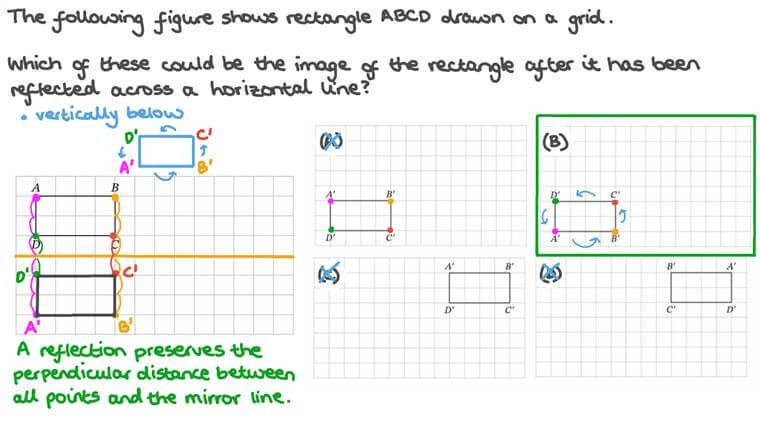 The following figure shows rectangle ABCD drawn on a grid.
Which of these could be the image of the rectangle after it has been
reflected across a horizontal line?
• vertically below
D' C'
A' B'
A B
D C
D' C'
A' B'
A reflection preserves the
perpendicular distance between
all points and the mirror line.
(A)
A' B'
D' C'
(B)
D' C'
A' B'
(C)
A' B'
D' C'
(D)
B' A'
C' D'